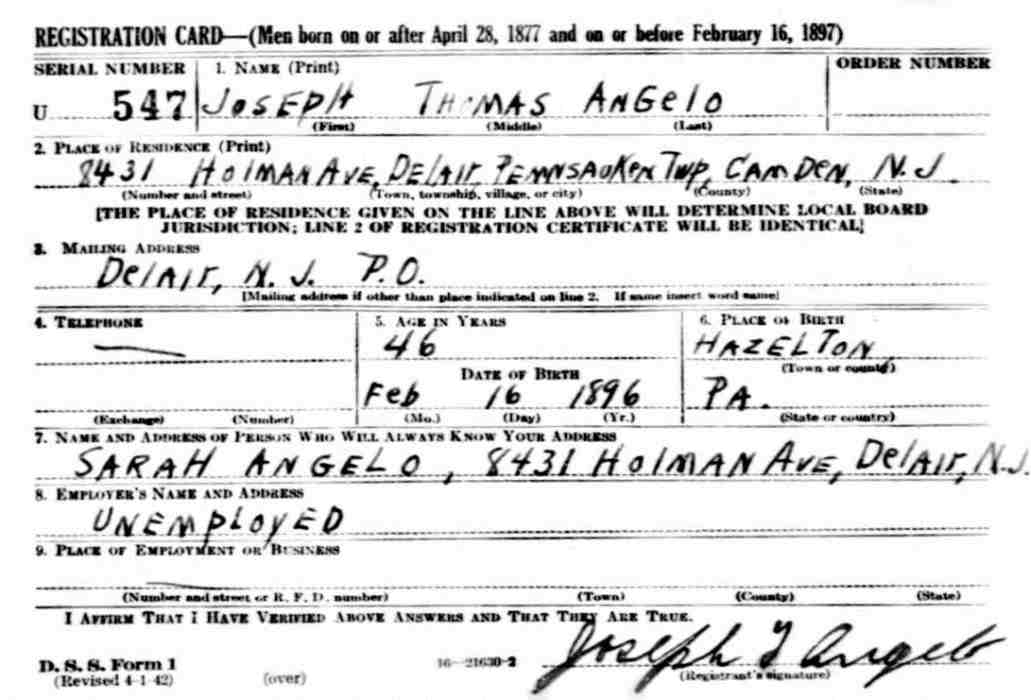 REGISTRATION CARD—(Men born on or after April 28, 1877 and on or before February 16, 1897)
SERIAL NUMBER 1. NAME (Print) ORDER NUMBER
U 547 JOSEPH THOMAS ANGELO
(First) (Middle) (Last)
2. PLACE OF RESIDENCE (Print)
8431 HOLMAN AVE, DELAIR, PENNSAUKEN TWP, CAMDEN, N.J.
(Number and street) (Town, township, village, or city) (County) (State)
[THE PLACE OF RESIDENCE GIVEN ON THE LINE ABOVE WILL DETERMINE LOCAL BOARD
JURISDICTION; LINE 2 OF REGISTRATION CERTIFICATE WILL BE IDENTICAL]
3. MAILING ADDRESS
DELAIR, N.J. P.O.
[Mailing address if other than place indicated on line 2. If same insert word same]
4. TELEPHONE 5. AGE IN YEARS 6. PLACE OF BIRTH
— 46 HAZELTON,
(Town or county)
DATE OF BIRTH
Feb 16 1896 PA.
(Exchange) (Number) (Mo.) (Day) (Yr.) (State or country)
7. NAME AND ADDRESS OF PERSON WHO WILL ALWAYS KNOW YOUR ADDRESS
SARAH ANGELO, 8431 HOLMAN AVE, DELAIR, N.J.
8. EMPLOYER'S NAME AND ADDRESS
UNEMPLOYED
9. PLACE OF EMPLOYMENT OR BUSINESS
—
(Number and street or R. F. D. number) (Town) (County) (State)
I AFFIRM THAT I HAVE VERIFIED ABOVE ANSWERS AND THAT THEY ARE TRUE.
D. S. S. Form 1 16—21630-2 Joseph T Angelo
(Revised 4-1-42) (over) (Registrant's signature)